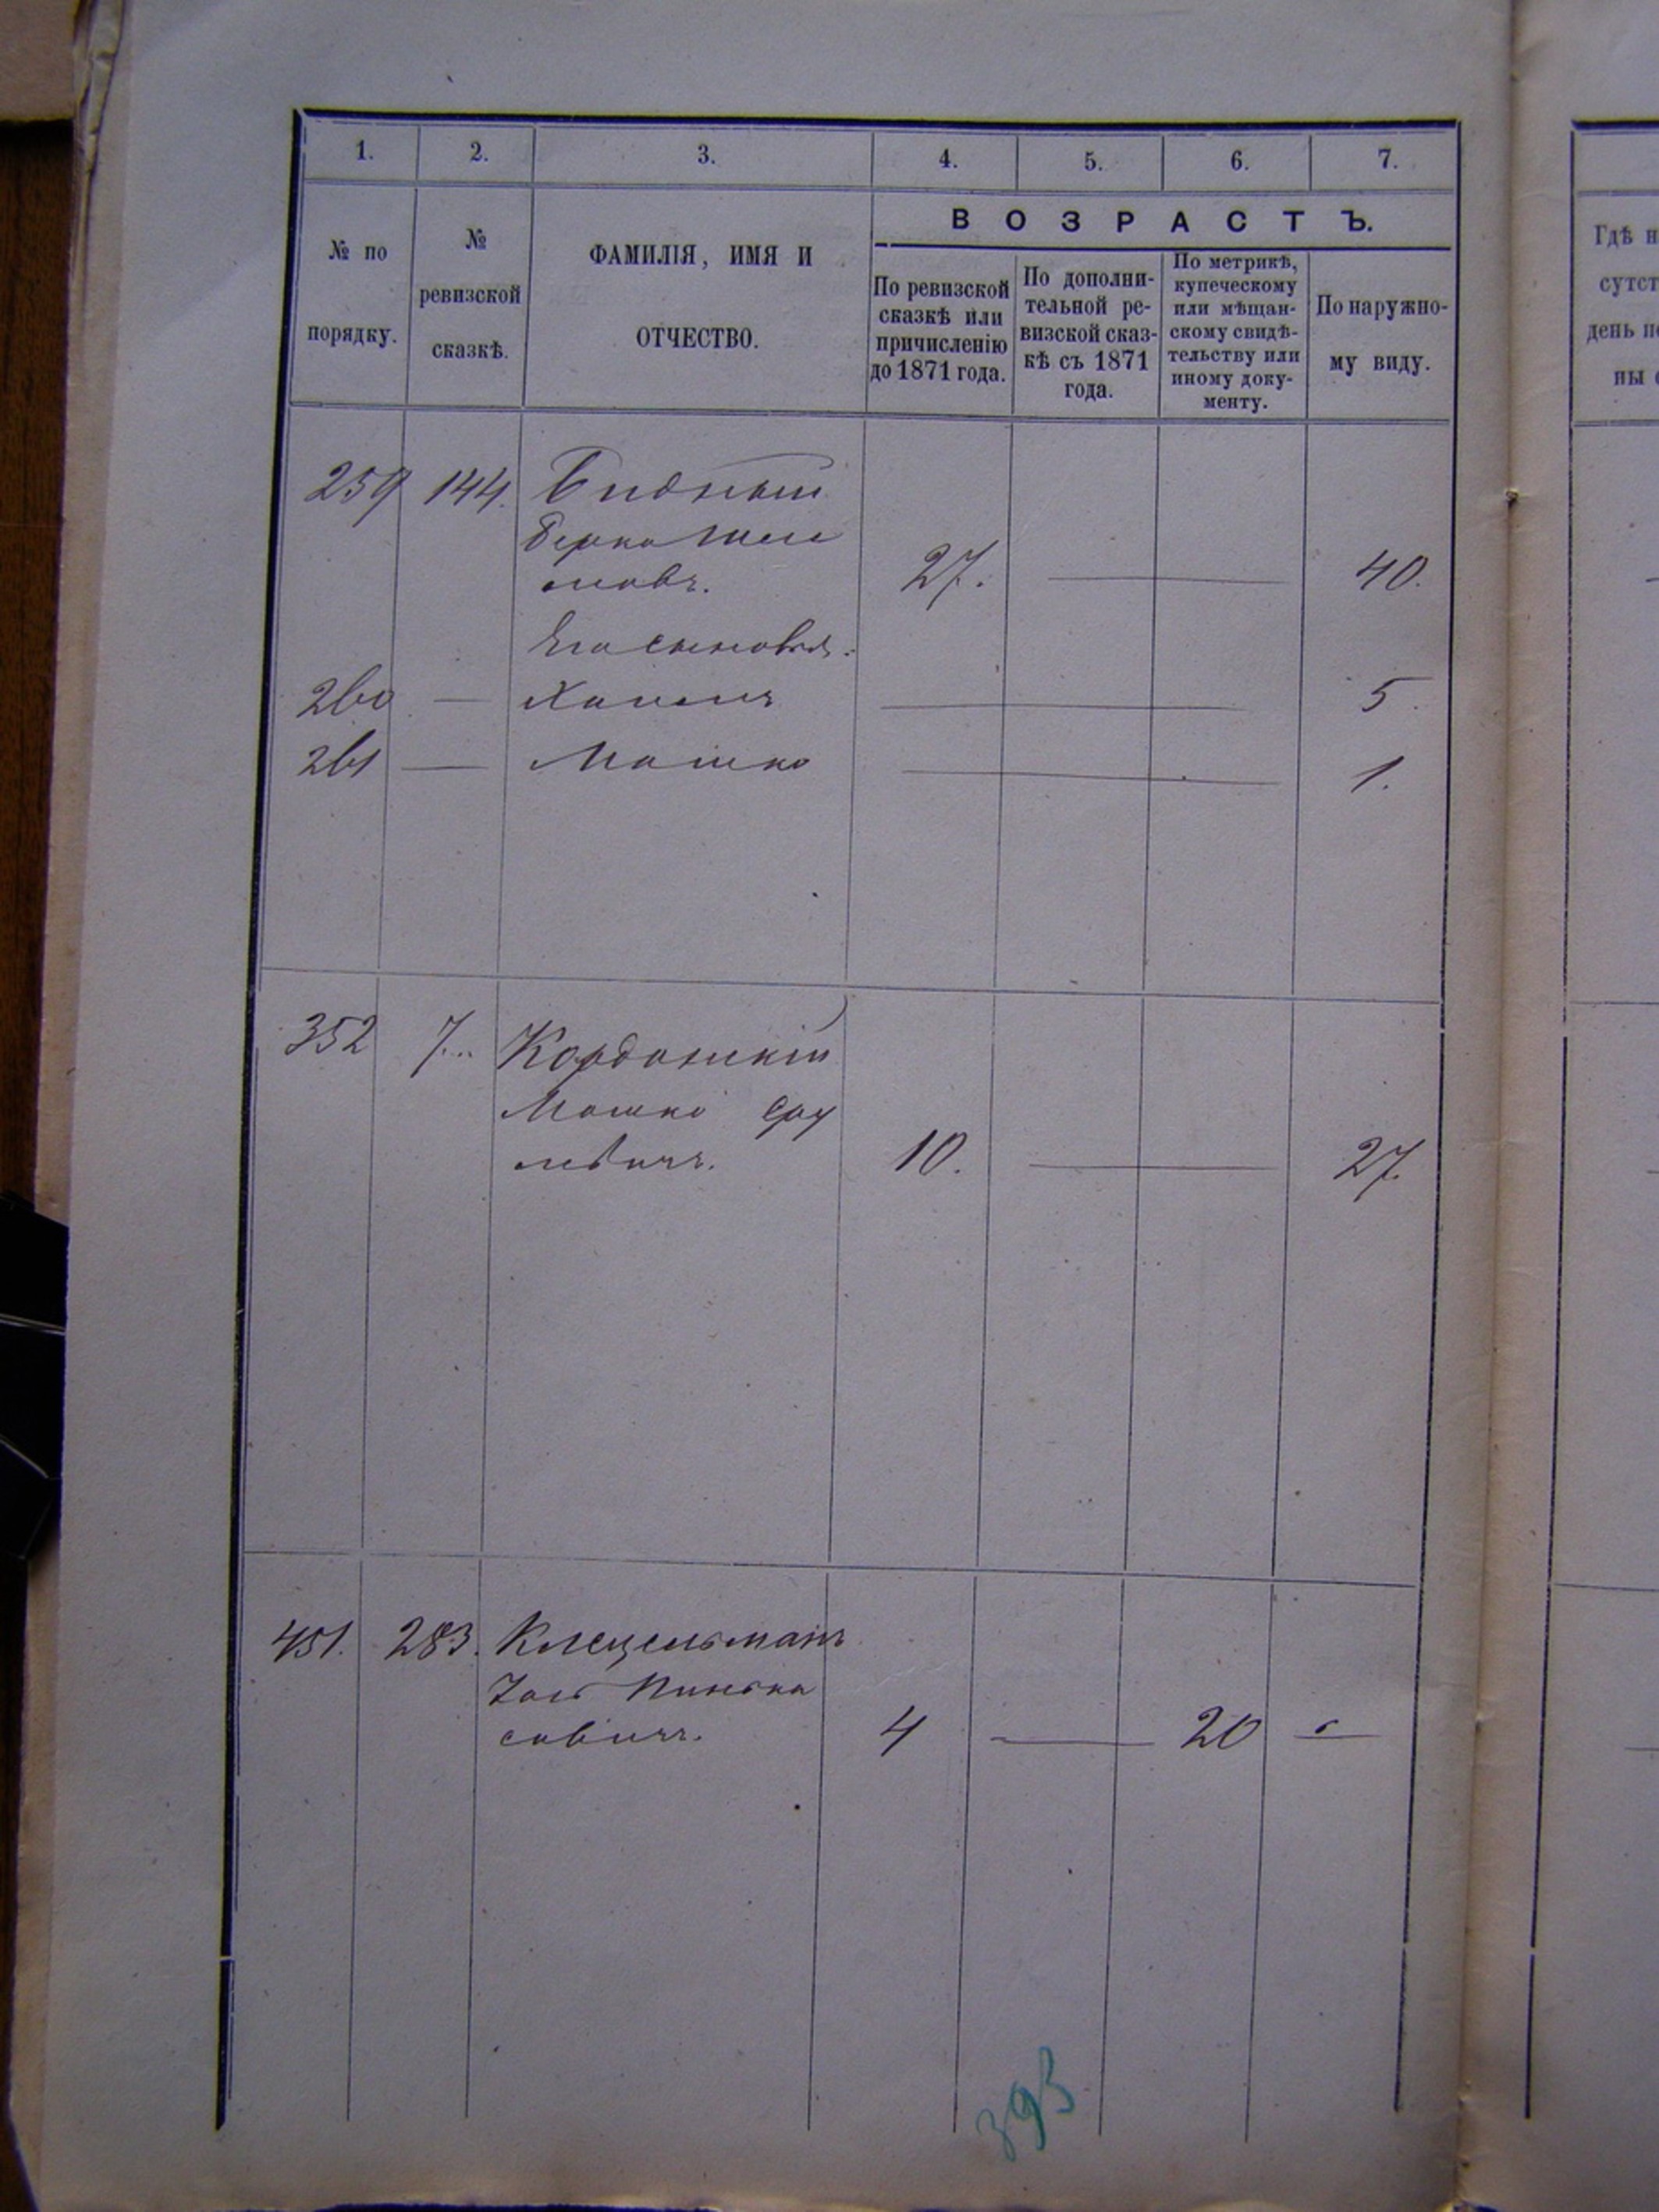 1. 2. 3. 4. 5. 6. 7.
№ по порядку.
№ ревизской сказкѣ.
ФАМИЛІЯ, ИМЯ И
ОТЧЕСТВО.
ВОЗРАСТЪ.
По ревизской
сказкѣ или
причисленію
до 1871 года.
По дополни-
тельной ре-
визской сказ-
кѣ съ 1871
года.
По метрикѣ,
купеческому
или мѣщан-
скому свидѣ-
тельству или
иному доку-
менту.
По наружно-
му виду.
Гдѣ н
сутст
день п
ны
259 144. Бидный
Берко Шле
мовъ. 27. — 40.
Его сыновья:
260 — — 5.
261 — Мошко — 1.
352 7. Кордонскій
Мошко Сру
левичъ. 10. — 27.
451. 283. Клецельманъ
Пинька
совичъ. 4 — 20 —
393